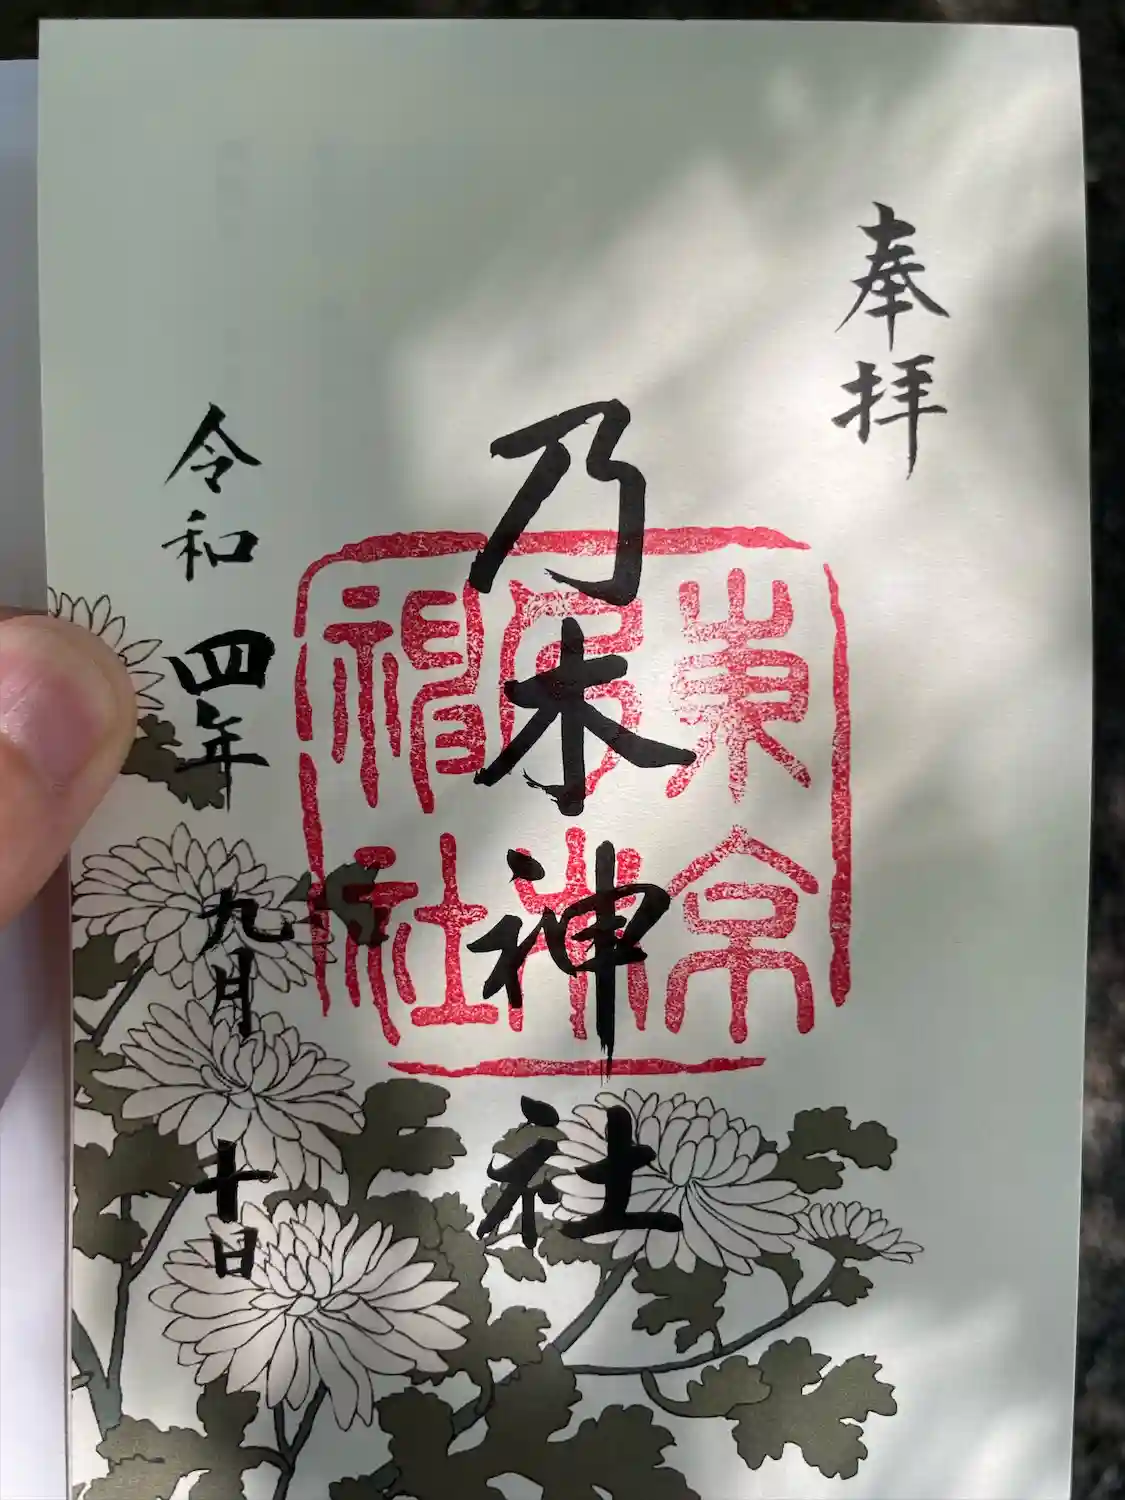 奉拝
乃木神社
東京
乃木
神社
令和四年九月十日